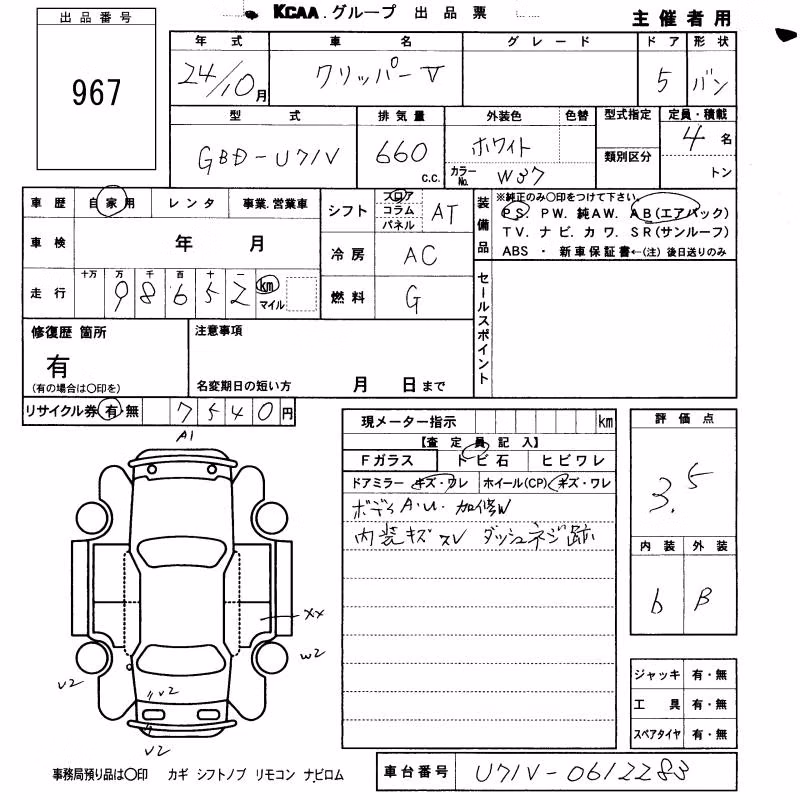 KCAA.グループ 出品票
主催者用
出品番号
967
年式 車名 グレード ドア 形状
24/10月 クリッパーV 5 バン
型式 排気量 外装色 色替 型式指定 定員・積載
GBD-U71V 660 c.c. ホワイト 4名
カラーNo. W37 類別区分 トン
車歴 自家用 レンタ 事業.営業車
シフト フロア コラム パネル AT
装備品 ※純正のみ〇印をつけて下さい。
PS. PW. 純AW. AB(エアバック)
TV. ナビ. カワ. SR(サンルーフ)
ABS ・ 新車保証書←(注) 後日送りのみ
車検 年 月
冷房 AC
走行 十万 万 千 百 十 一
98652 km マイル
燃料 G
セールスポイント
修復歴 箇所
有
(有の場合は〇印を)
注意事項
名変期日の短い方 月 日まで
リサイクル券 有・無 7540円
現メーター指示 km
【査定員記入】
Fガラス トビ石 ヒビワレ
ドアミラー キズ・ワレ ホイール(CP) キズ・ワレ
ボディA.U. 加修W
内装キズ ダッシュネジ跡
評価点
3.5
内装 外装
b B
A1
XX
W2
V2
V2
V2
ジャッキ 有・無
工具 有・無
スペアタイヤ 有・無
事務局預り品は〇印 カギ シフトノブ リモコン ナビロム
車台番号 U71V-0612283